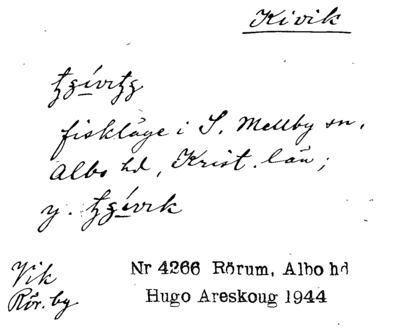 Kivik
fiskläge i S. Mellby sn,
Albo hd, Krist. län;
y.
Vik
Rör. by
Nr 4266 Rörum, Albo hd
Hugo Areskoug 1944